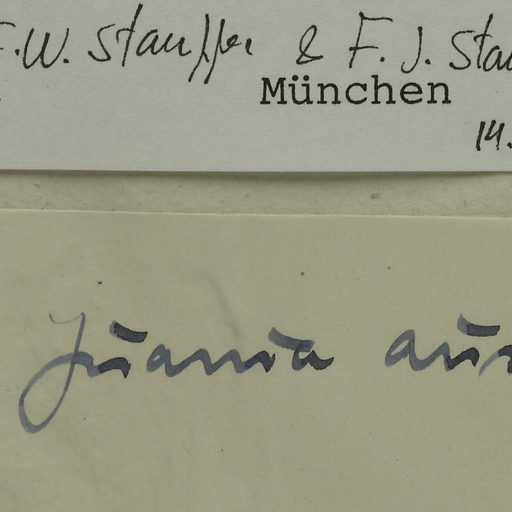 F.W. Stauffer & F. J. Stau
München
14.
Juania aus